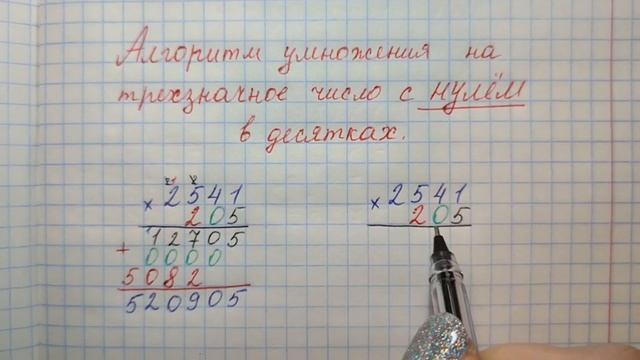 Алгоритм умножения на
трехзначное число с нулём
в десятках.
2 x
× 2541
205
12705
+ 0000
5082
520905
× 2541
205